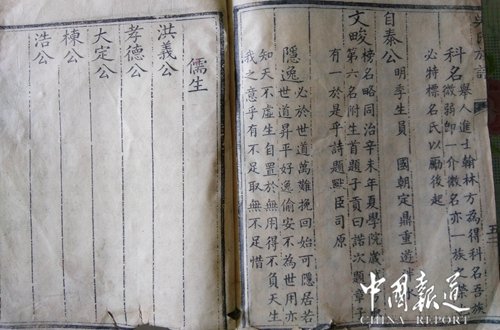 科名
舉人進士翰林方為得科名吾族
微弱卽一介微名亦一族榮
必特標名氏以勵後起
自泰公
明季生員 國朝定鼎重遊
文畯
榜名略同治辛未年夏學院歲
第六名附生首題子貢曰諾次題章子
有一於是乎詩題臣司原
隱逸
必於世道萬難挽回始可隱居若
世道昇平好逸偷安不為世用亦
知天不虛生自置於無用得不負天生
我之意乎有不足取無不足惜
儒生
洪義公
孝德公
大定公
棟公
浩公
中國報道
CHINA REPORT